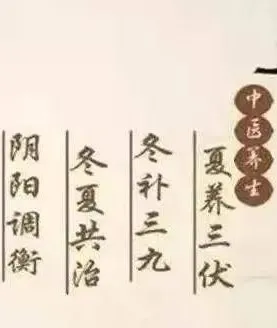 中医养生
夏养三伏
冬补三九
冬夏共治
阴阳调衡